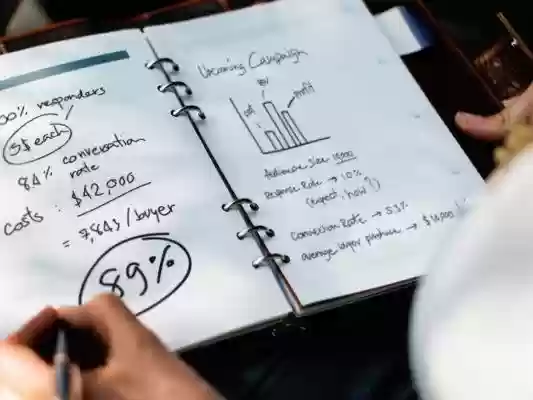 00% responders
5$ each
84% conversation
rate
costs : $42,000
= 7,843 / buyer
89%
Upcoming Campaign
profit
Audience Size 10,000
Response Rate → 10%
(expect, how!)
Conversion Rate → 53%
average buyer purchase →